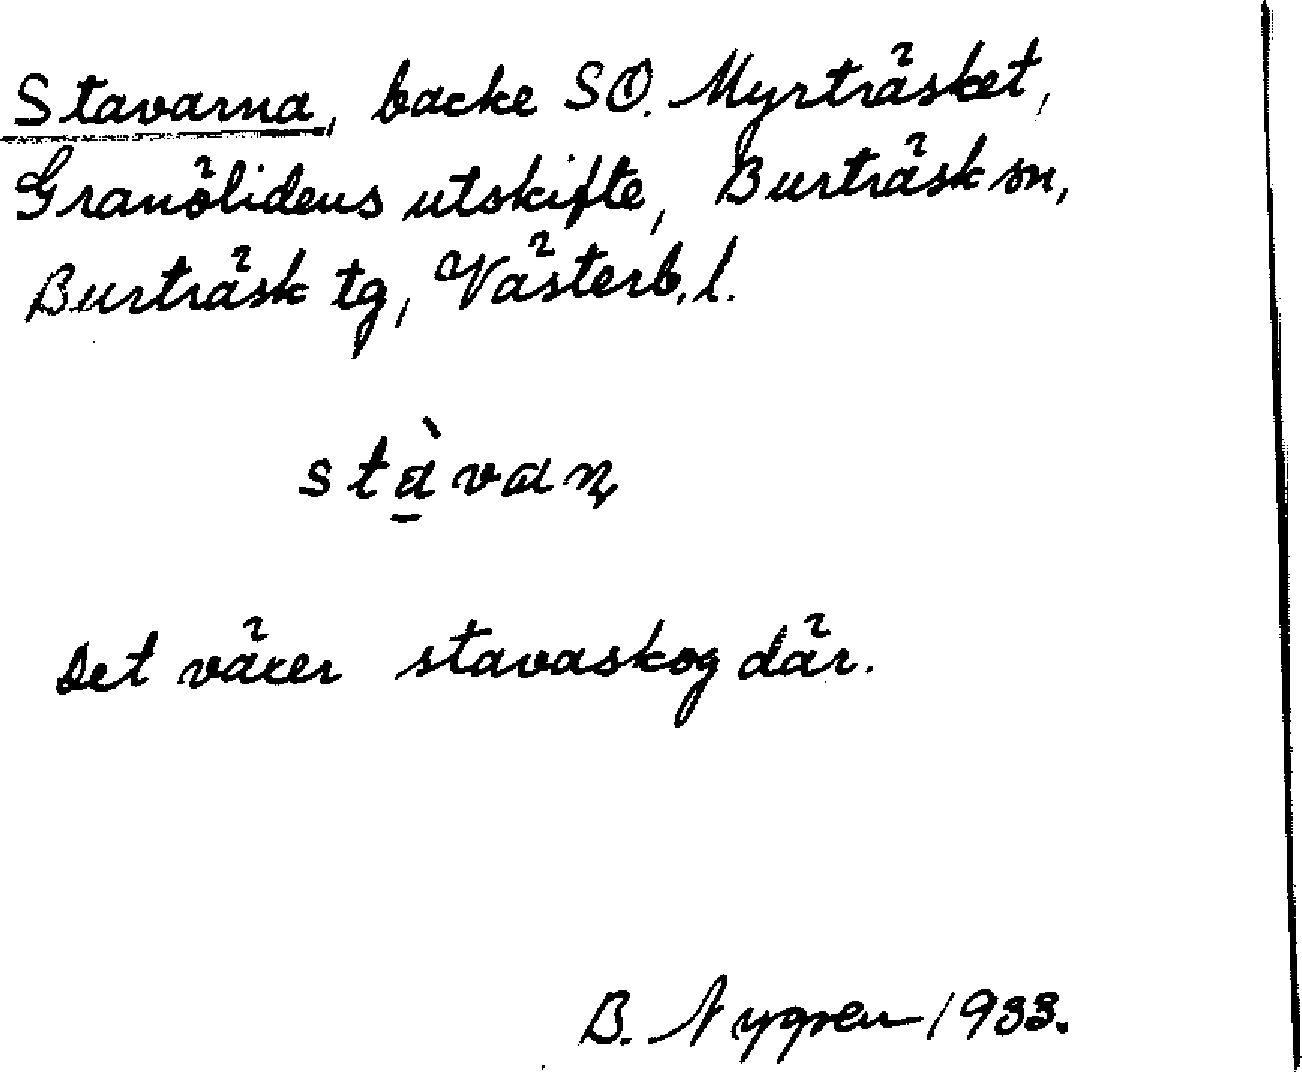 Stavarna, backe SO. Myrträsket,
Granölidens utskifte, Burträsk sn,
Burträsk tg, Västerb. l.
stà̠vaɳ
Det växer stavaskog där.
B. Nygren 1933.